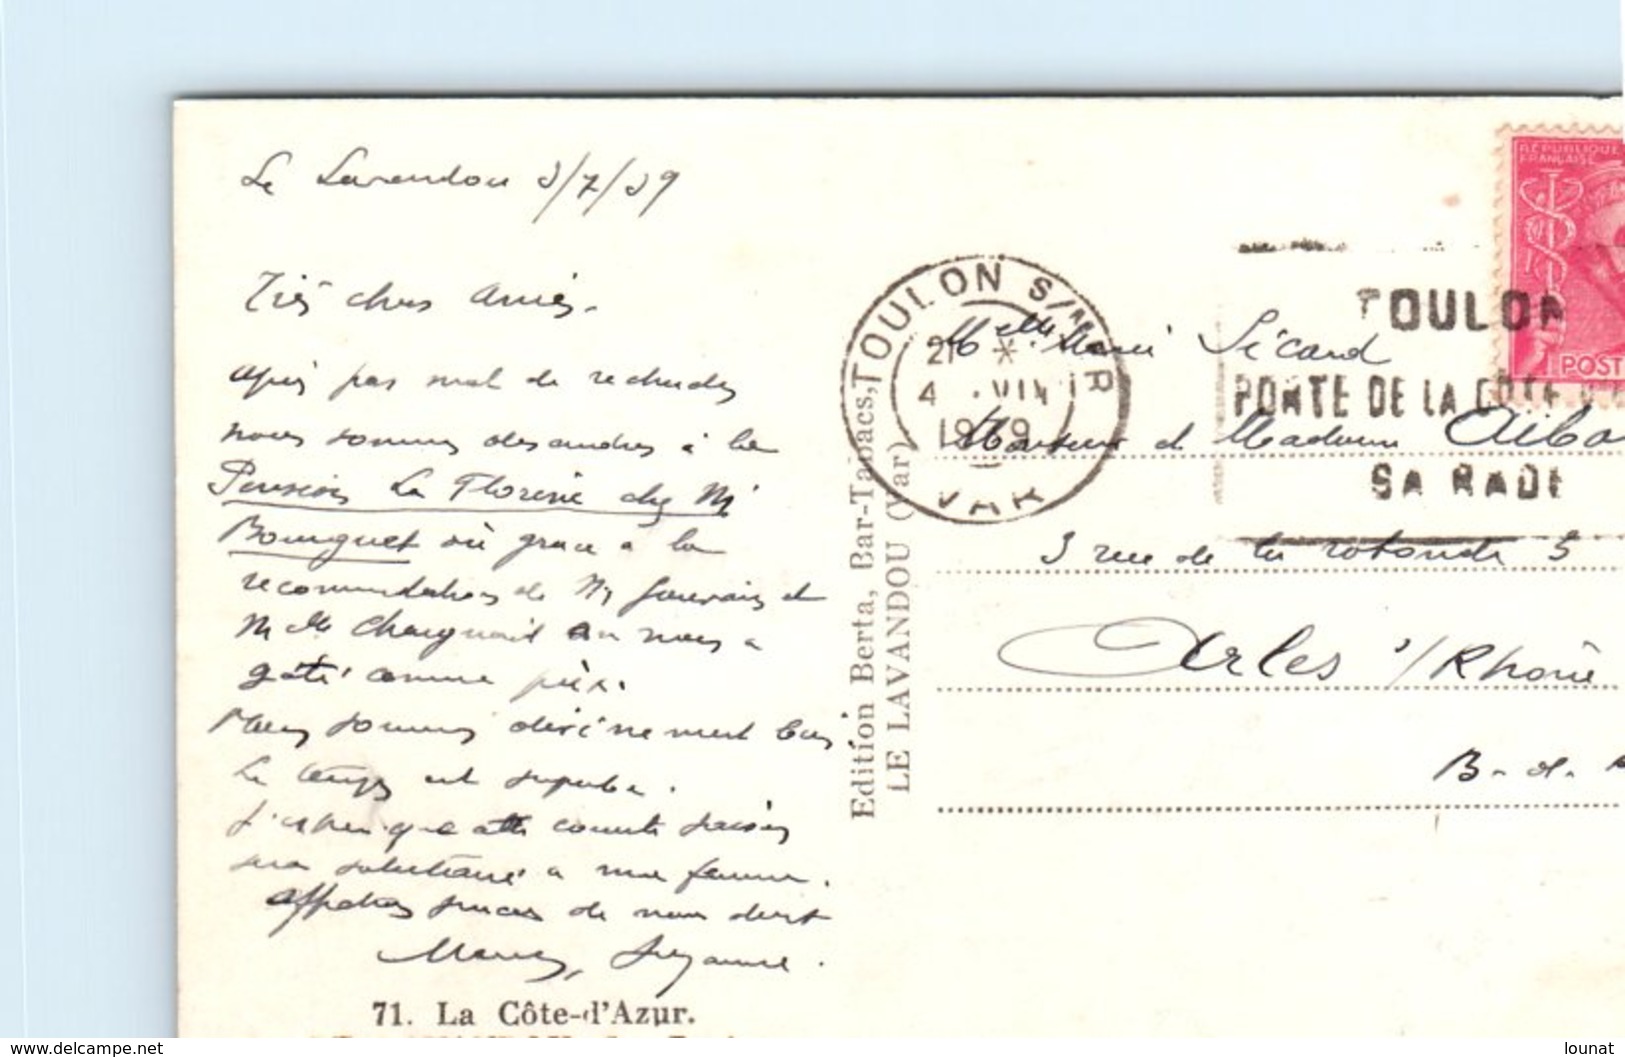 Le Lavandou 3/7/39
Très chers Amis,
après pas mal de recherches
nous sommes descendus à la
Pension La Florine chez Mr
Bouquet où grâce à la
recommandation de Mr et
Melle on nous a
gâté comme
Nous sommes divinement bien.
Le temps est superbe.
J'espère que cette courte saison
sera salutaire à ma femme.
Affectueux de nous deux
Suzanne.
71. La Côte-d'Azur.
Edition Berta, Bar-Tabacs,
LE LAVANDOU (Var)
TOULON S/MER
21 *
4 VII
1939
VAR
TOULON
PORTE DE LA COTE D'
SA RADE
RÉPUBLIQUE
FRANÇAISE
POST
Melle Marie Sicard
Monsieur et Madame
3 rue de la rotonde 5
Arles s/Rhône
B.-d.-
delcampe.net
lounat